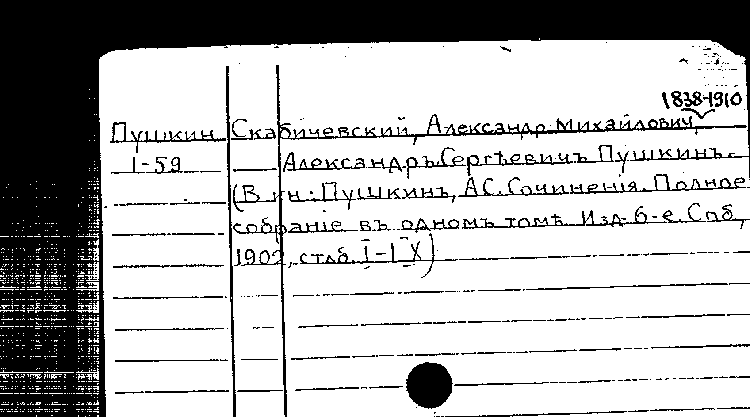 1838-1910
Пушкин Скабичевский, Александр Михайлович,
I-59 Александръ Сергѣевичъ Пушкинъ.
(В кн.: Пушкинъ, А.С. Сочиненія. Полное
собраніе въ одномъ томѣ. Изд. 6-е. Спб,
1902, стлб. I-IX)